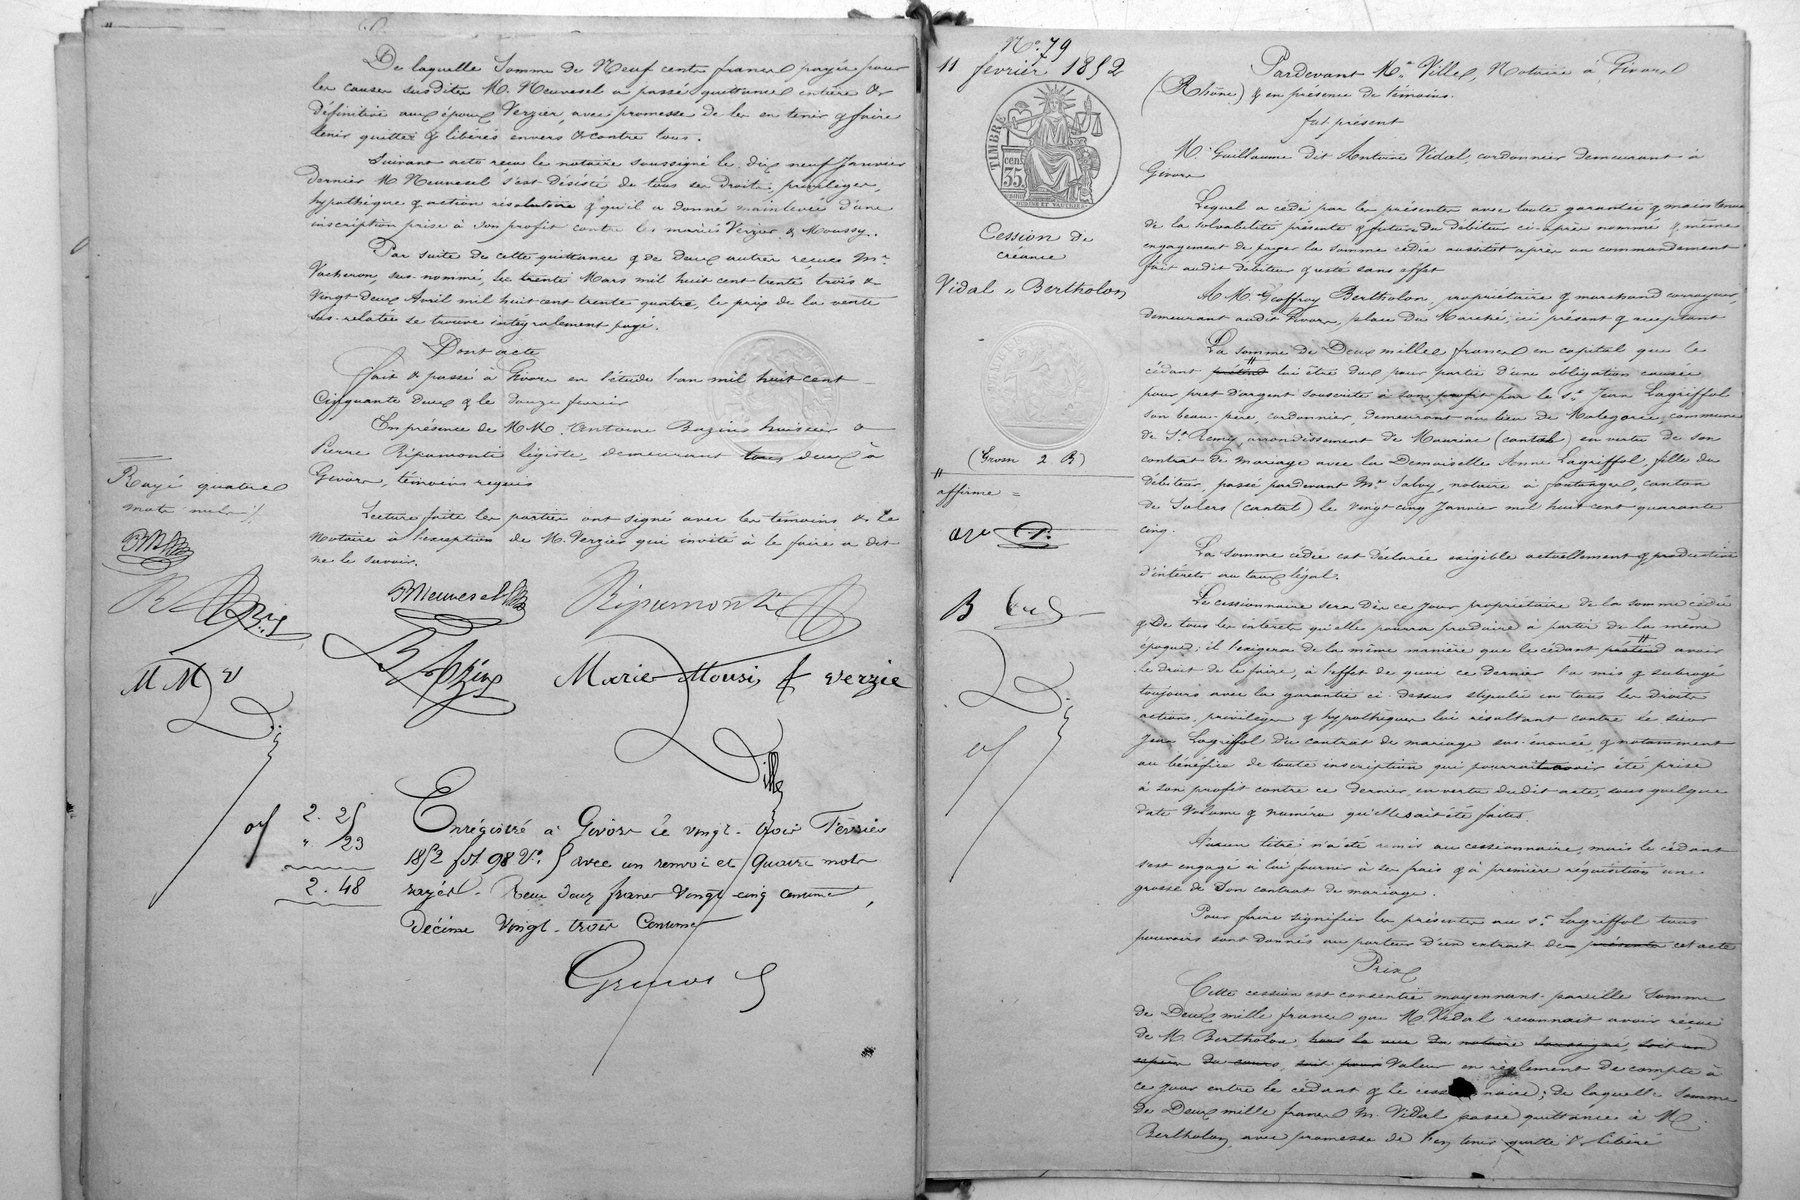 De laquelle Somme de Neuf cents francs payée pour
les causes susdites M. Neuvesel a passé quittance entière &
définitive aux époux Verzier, avec promesse de les en tenir & faire
tenir quittes & libérés envers & contre tous.
Suivant acte reçu le notaire soussigné le dix neuf Janvier
dernier M Neuvesel s'est désisté de tous ses droits, privilèges,
hypothèque & action résolutoire & qu'il a donné mainlevée d'une
inscription prise à son profit contre les mariés Verzier & Moussy.
Par suite de cette quittance & de deux autres reçues Mr
Vacheron, sus-nommé, les trente Mars mil huit cent trente trois &
Vingt deux Avril mil huit cent trente quatre, le prix de la vente
sus-relatée se trouve intégralement payé.
Dont acte
Fait & passé à Givors en l'étude l'an mil huit cent
Cinquante deux & le douze février
En présence de MM. Antoine Bazin huissier &
Pierre Ripamonti légiste, demeurant tous deux à
Givors, témoins requis
Lecture faite les parties ont signé avec les témoins & le
Notaire à l'exception de M. Verzier qui invité à le faire a dit
ne le savoir.
Rayé quatre
mots nuls
MNeuvesel
Ripamonti
Bazin
Marie Mousi f verzie
M M V
Ville
2. 25
" /23
2. 48
Enrégistré à Givors le vingt-trois Février
1852 fol. 98 Vo. 5 avec un renvoi et quatre mots
rayés. Reçu deux francs Vingt-cinq centimes,
Décime Vingt-trois Centimes
No. 79
11 février 1852
TIMBRE
cen.
35
Cession de
créance
Vidal " Bertholon
(Grosn 2 R)
affirme =
Pardevant Me Ville, Notaire à Givors
(Rhône) & en présence de témoins.
fut présent
M. Guillaume dit Antoine Vidal, cordonnier demeurant à
Givors
Lequel a cédé par les présentes avec toute garantie & maintenue
de la solvabilité présente & future du débiteur ci-après nommé & même
engagement de payer la somme cédée aussitôt après un commandement
fait audit débiteur & resté sans effet
A M. Geoffroy Bertholon, propriétaire & marchand corroyeur,
demeurant audit Givors, place du Marché, ici présent & acceptant
La somme de Deux mille francs en capital que le
cédant prétend lui être due pour partie d'une obligation causée
pour prêt d'argent souscrite à son profit par le sr Jean Lagriffol
son beau-père, cordonnier, demeurant au lieu de Malegorie, commune
de St Remy, arrondissement de Mauriac (cantal) en vertu de son
contrat de mariage avec la Demoiselle Anne Lagriffol, fille du
débiteur, passé pardevant Me Salvy, notaire à fontanges, canton
de Salers (cantal) le vingt cinq Janvier mil huit cent quarante
cinq.
La somme cédée est déclarée exigible actuellement & productive
d'intérêts au taux légal.
Le cessionnaire sera dès ce jour propriétaire de la somme cédée
& de tous les intérêts qu'elle pourra produire à partir de la même
époque; il l'exigera de la même manière que le cédant prétend avoir
le droit de le faire, à l'effet de quoi ce dernier l'a mis & subrogé
toujours avec la garantie ci-dessus stipulée en tous les droits
actions, privilèges & hypothèques lui résultant contre le sieur
Jean Lagriffol du contrat de mariage sus-énoncé, & notamment
au bénéfice de toute inscription qui pourrait avoir été prise
à son profit contre ce dernier, en vertu dudit acte, sous quelque
date Volume & numéro qu'elles ait été faites.
Aucun titre n'a été remis au cessionnaire, mais le cédant
s'est engagé à lui fournir à ses frais & à première réquisition une
grosse de son contrat de mariage.
Pour faire signifier les présentes au sr Lagriffol tous
pouvoirs sont donnés au porteur d'un extrait de présente cet acte
Prix
Cette cession est consentie moyennant pareille Somme
de Deux mille francs que M. Vidal reconnait avoir reçue
de M. Bertholon hors la vue du notaire soussigné, soit en
espèces du cours, soit pour Valeur en règlement de compte à
ce jour entre le cédant & le cessionnaire; de laquelle Somme
de Deux mille francs M. Vidal passe quittance à M.
Bertholon, avec promesse de l'en tenir quitte & libéré